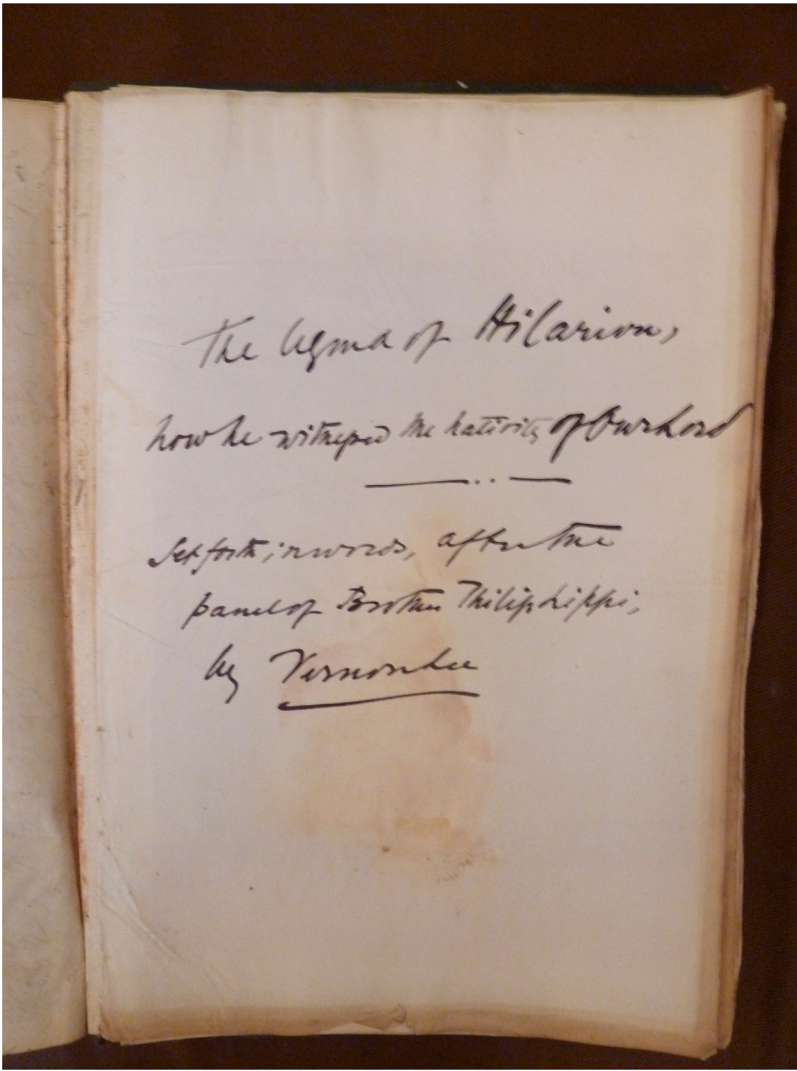 The legend of Hilarion,
how he witnessed the nativity of Our Lord
Set forth in words, after the
panel of Brother Philip Lippi,
by Vernon Lee